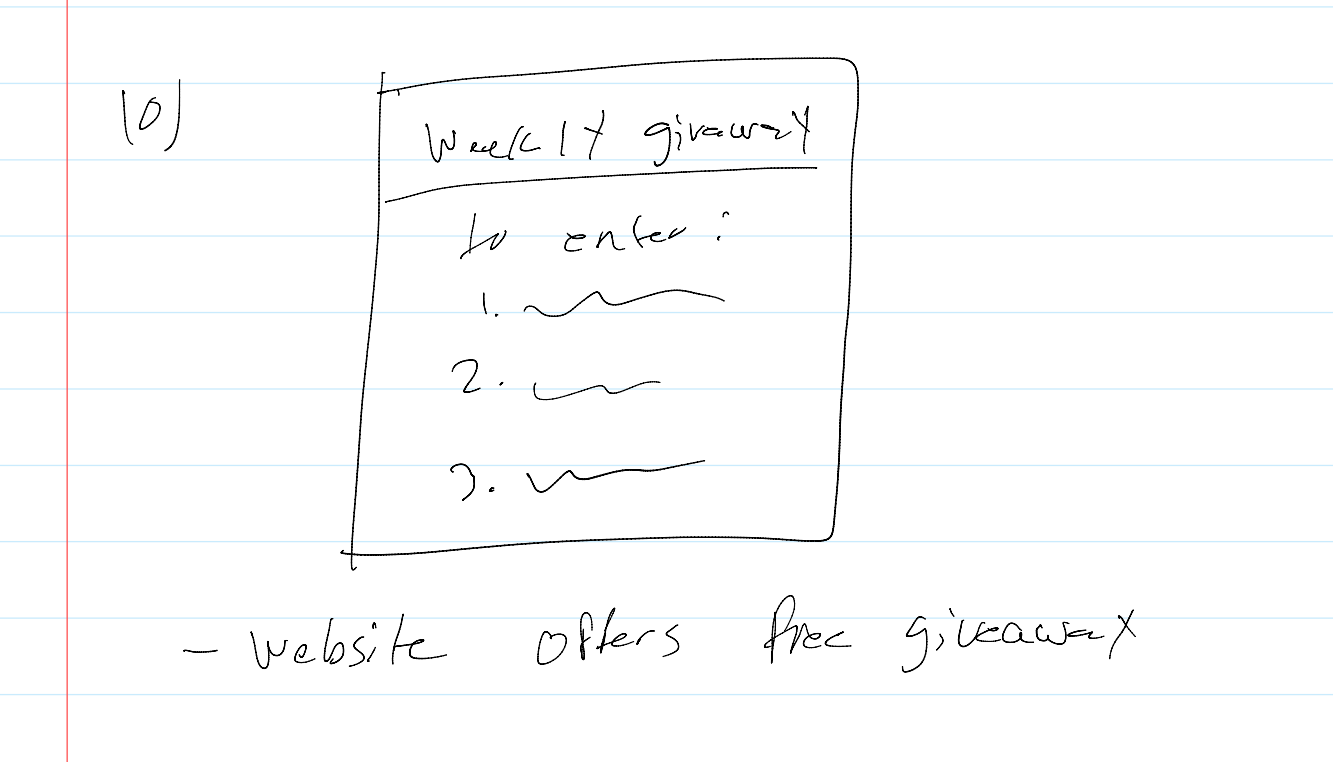 10)
Weekly giveaway
to enter:
1.
2.
3.
- website offers free giveaway